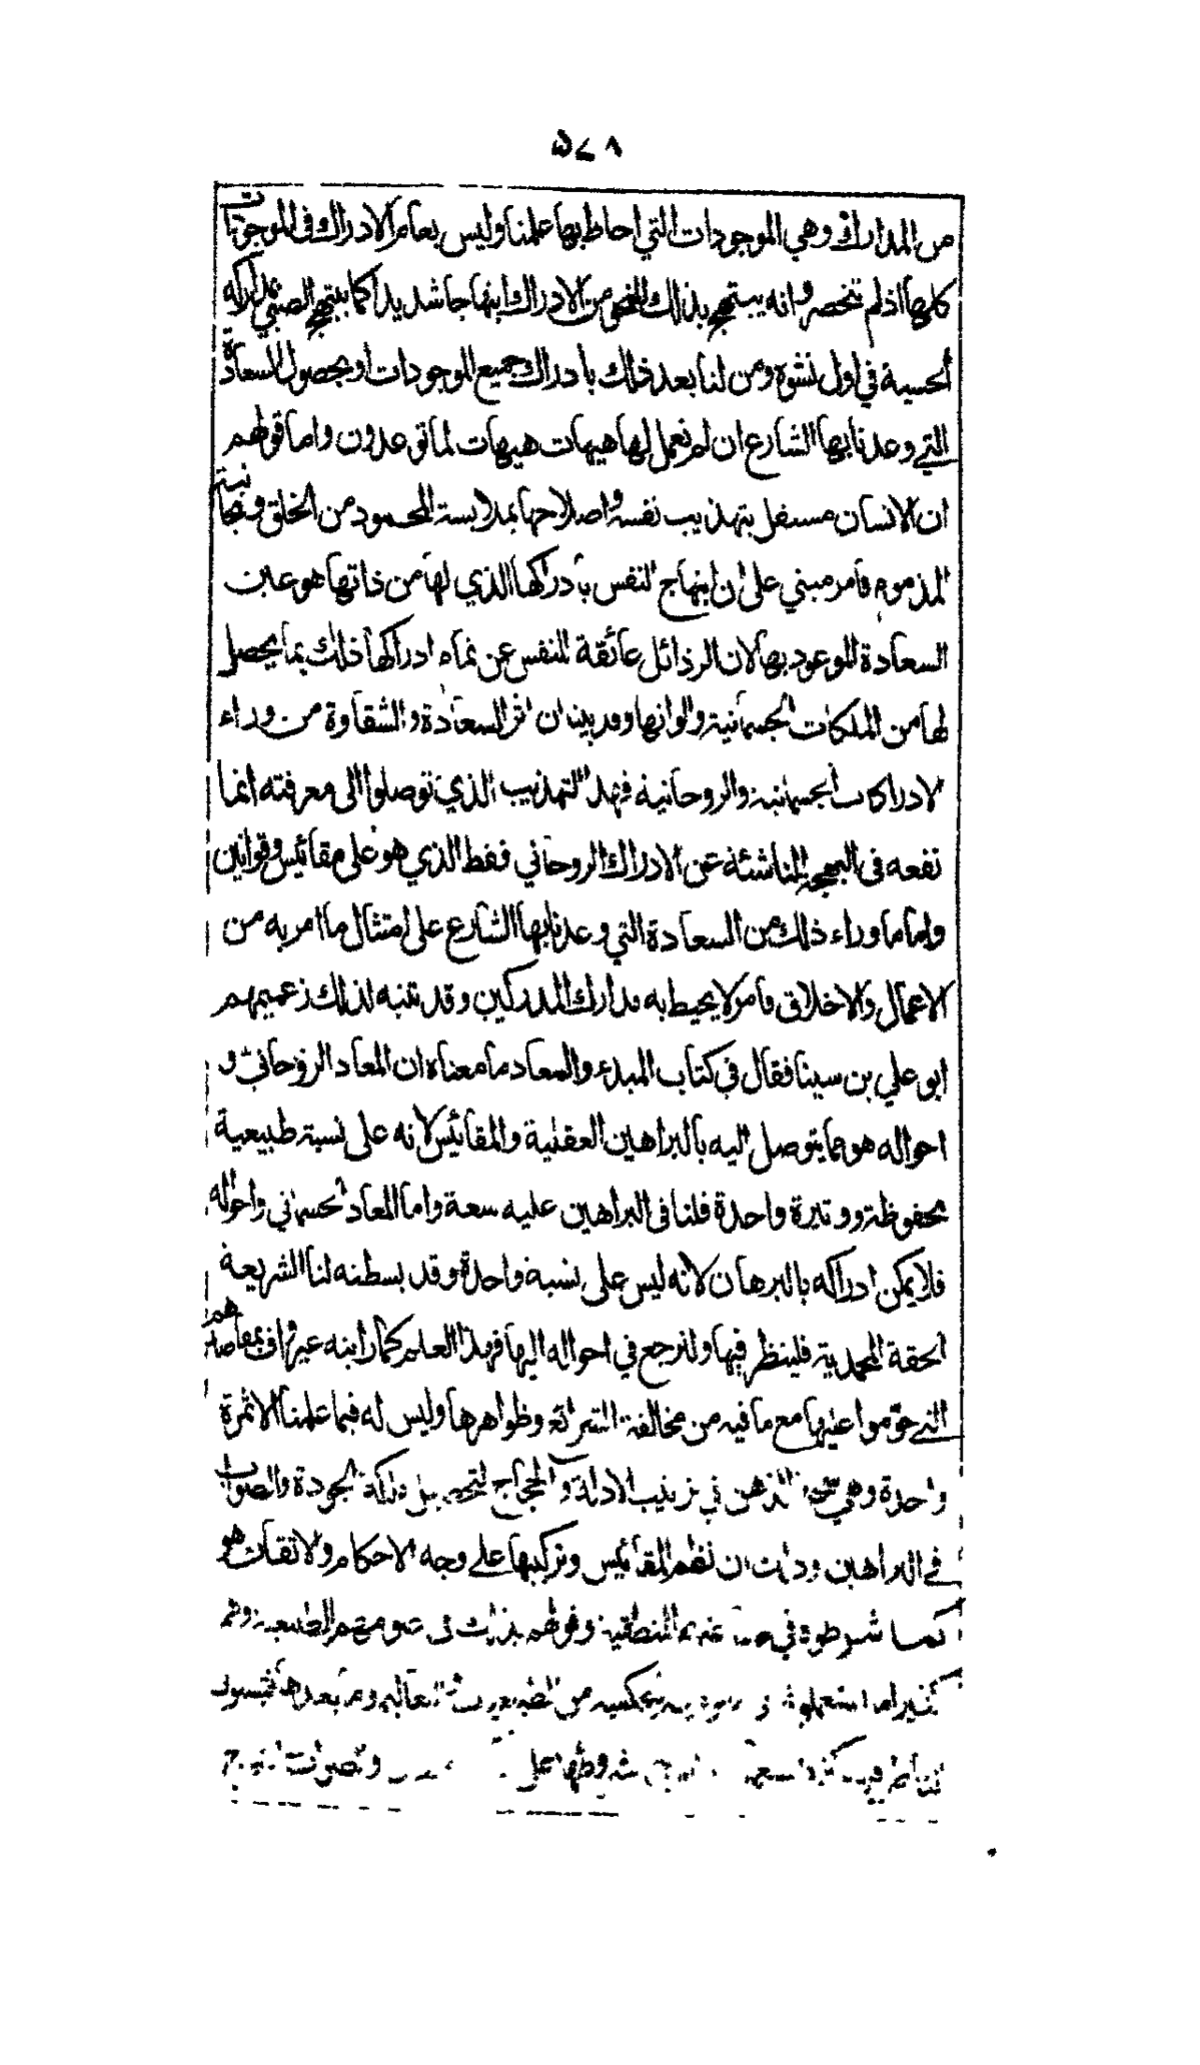 ٥٧٨
من المدارك وهي الموجودات التي احاط بها علمنا وليس بعام الادراك في الموجودات
كلها اذ لم تنحصر وانه يبتهج بذلك النحو من الادراك ابتهاجا شديدا كما يبتهج الصبي بمداركه
الحسية في اول نشوه ومن لنا بعد ذلك بادراك جميع الموجودات او بحصول السعادة
التي وعدنا بها الشارع ان لم نعمل لها هيهات هيهات لما توعدون واما قولهم
ان الانسان مستقل بتهذيب نفسه واصلاحها بملابسة المحمود من الخلق ومجانبة
المذموم فامر مبني على ان ابتهاج النفس بادراكها الذي لها من ذاتها هو عين
السعادة الموعود بها لان الرذائل عائقة للنفس عن تمام ادراكها ذلك بما يحصل
لها من الملكات الجسمانية والوانها وقد بينا ان اثر السعادة والشقاوة من وراء
الادراكات الجسمانية والروحانية فهذا التهذيب الذي توصلوا الى معرفته انما
نفعه في البهجة الناشئة عن الادراك الروحاني فقط الذي هو على مقائيس وقوانين
واما ما وراء ذلك من السعادة التي وعدنا بها الشارع على امتثال ما امر به من
الاعمال والاخلاق فامر لا يحيط به مدارك المدركين وقد تنبه لذلك زعميهم
ابو علي بن سينا فقال في كتاب المبدء والمعاد ما معناه ان المعاد الروحاني و
احواله هو مما يتوصل اليه بالبراهين العقلية والمقائيس لانه على نسبة طبيعية
محفوظة ووتيرة واحدة فلنا في البراهين عليه سعة واما المعاد الجسماني واحواله
فلا يمكن ادراكه بالبرهان لانه ليس على نسبة واحدة وقد بسطته لنا الشريعة
الحقة المحمدية فلينظر فيها ولنرجع في احواله اليها فهذا العلم كما رأيته غير واف بمقاصدهم
التي حوموا عليها مع ما فيه من مخالفة الشرائع وظواهرها وليس له فيما علمنا الا ثمرة
واحدة وهي شحذ الذهن في ترتيب الادلة والحجاج لتحصيل ملكة الجودة والصواب
في البراهين وذلك ان نظم المقائيس وتركيبها على وجه الاحكام والاتقان هو
كما شرطوه في صناعتهم المنطقية وقولهم بذلك في علومهم الطبيعية وهم
كثيرا ما يستعملونها في علومهم الحكمية من الطبيعيات والتعاليم وما بعدها فيستولي
الناظر فيها بكثرة استعمال البراهين بشروطها على